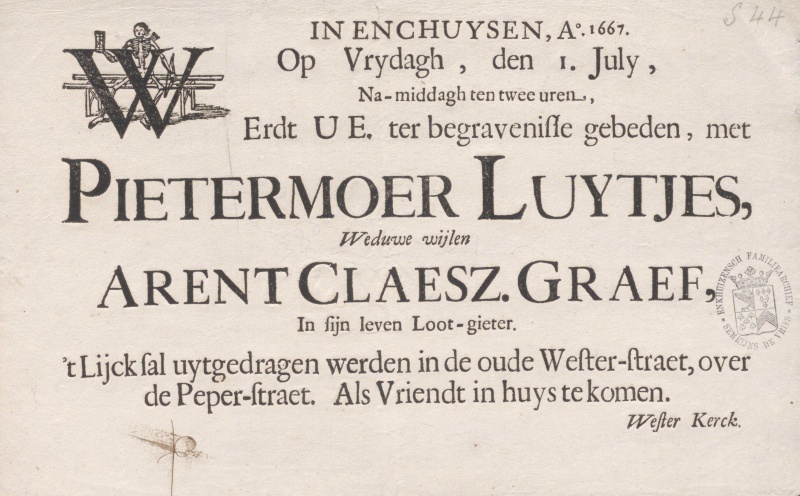 S 44
IN ENCHUYSEN, Aº. 1667.
Op Vrydagh, den 1. July,
Na-middagh ten twee uren,
WErdt U E. ter begravenisse gebeden, met
PIETERMOER LUYTJES,
Weduwe wijlen
ARENT CLAESZ. GRAEF,
In sijn leven Loot-gieter.
't Lijck sal uytgedragen werden in de oude Wester-straet, over
de Peper-straet. Als Vriendt in huys te komen.
Wester Kerck.
ENKHUIZENSCH FAMILIEARCHIEF
SEMEIJNS DE VRIES